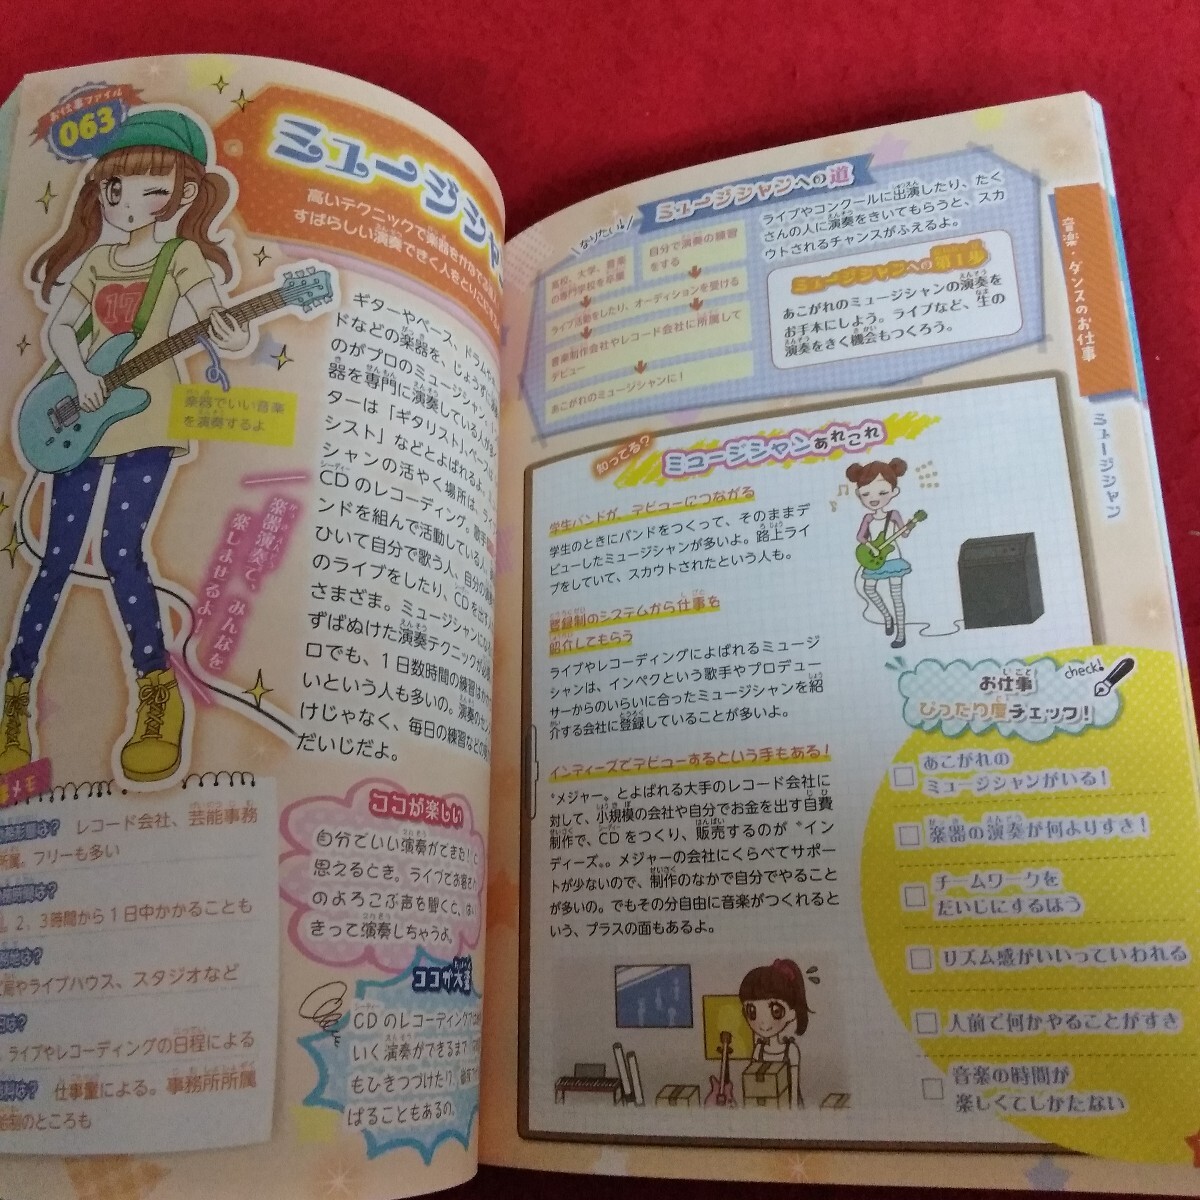 お仕事ファイル
063
ミュージシャン
高いテクニックで楽器をかなでる
すばらしい演奏できく人を
楽器でいい音楽
を演奏するよ
楽器演奏で、みんなを
楽しませるよ!
ギターやベース、ドラム
ドなどの楽器を、じょうずに
のがプロのミュージシャン。
器を専門に演奏している人が多
ターは「ギタリスト」、ベースは
シスト」などとよばれるよ。
シャンの活やく場所は、
CDのレコーディング。歌手
ンドを組んで活動している人、
ひいて自分で歌う人、自分の
のライブをしたり、CDを出す
さまざま。ミュージシャンにな
ずばぬけた演奏テクニックが必
ロでも、1日数時間の練習は
いという人も多いの。演奏のセン
けじゃなく、毎日の練習などの
だいじだよ。
メモ
レコード会社、芸能事務
所属。フリーも多い
2、3時間から1日中かかることも
局やライブハウス、スタジオなど
ライブやレコーディングの日程による
仕事量による。事務所所属
のところも
ココが楽しい
自分でいい演奏ができた!と
思えるとき。ライブでお客さ
のよろこぶ声を聞くと、
きって演奏しちゃうよ。
ココが大変
CDのレコーディング
いく演奏ができるまで
もひきつづけたり、
ばることもあるの。
なりたい!
ミュージシャンへの道
高校、大学、音楽
の専門学校を卒業
自分で演奏の練習
をする
ライブ活動をしたり、オーディションを受ける
音楽制作会社やレコード会社に所属して
デビュー
あこがれのミュージシャンに!
ライブやコンクールに出演したり、たく
さんの人に演奏をきいてもらうと、スカ
ウトされるチャンスがふえるよ。
ミュージシャンへの第1歩
あこがれのミュージシャンの演奏を
お手本にしよう。ライブなど、生の
演奏をきく機会もつくろう。
音楽・ダンスのお仕事
ミュージシャン
知ってる?
ミュージシャンあれこれ
学生バンドが、デビューにつながる
学生のときにバンドをつくって、そのままデ
ビューしたミュージシャンが多いよ。路上ライ
ブをしていて、スカウトされたという人も。
登録制のシステムから仕事を
紹介してもらう
ライブやレコーディングによばれるミュージ
シャンは、インペクという歌手やプロデュー
サーからのいらいに合ったミュージシャンを紹
介する会社に登録していることが多いよ。
インディーズでデビューするという手もある!
"メジャー"とよばれる大手のレコード会社に
対して、小規模の会社や自分でお金を出す自費
制作で、CDをつくり、販売するのが"イン
ディーズ"。メジャーの会社にくらべてサポー
トが少ないので、制作のなかで自分でやること
が多いの。でもその分自由に音楽がつくれると
いう、プラスの面もあるよ。
お仕事
ぴったり度チェック!
check!
あこがれの
ミュージシャンがいる!
楽器の演奏が何よりすき!
チームワークを
だいじにするほう
リズム感がいいっていわれる
人前で何かやることがすき
音楽の時間が
楽しくてしかたない